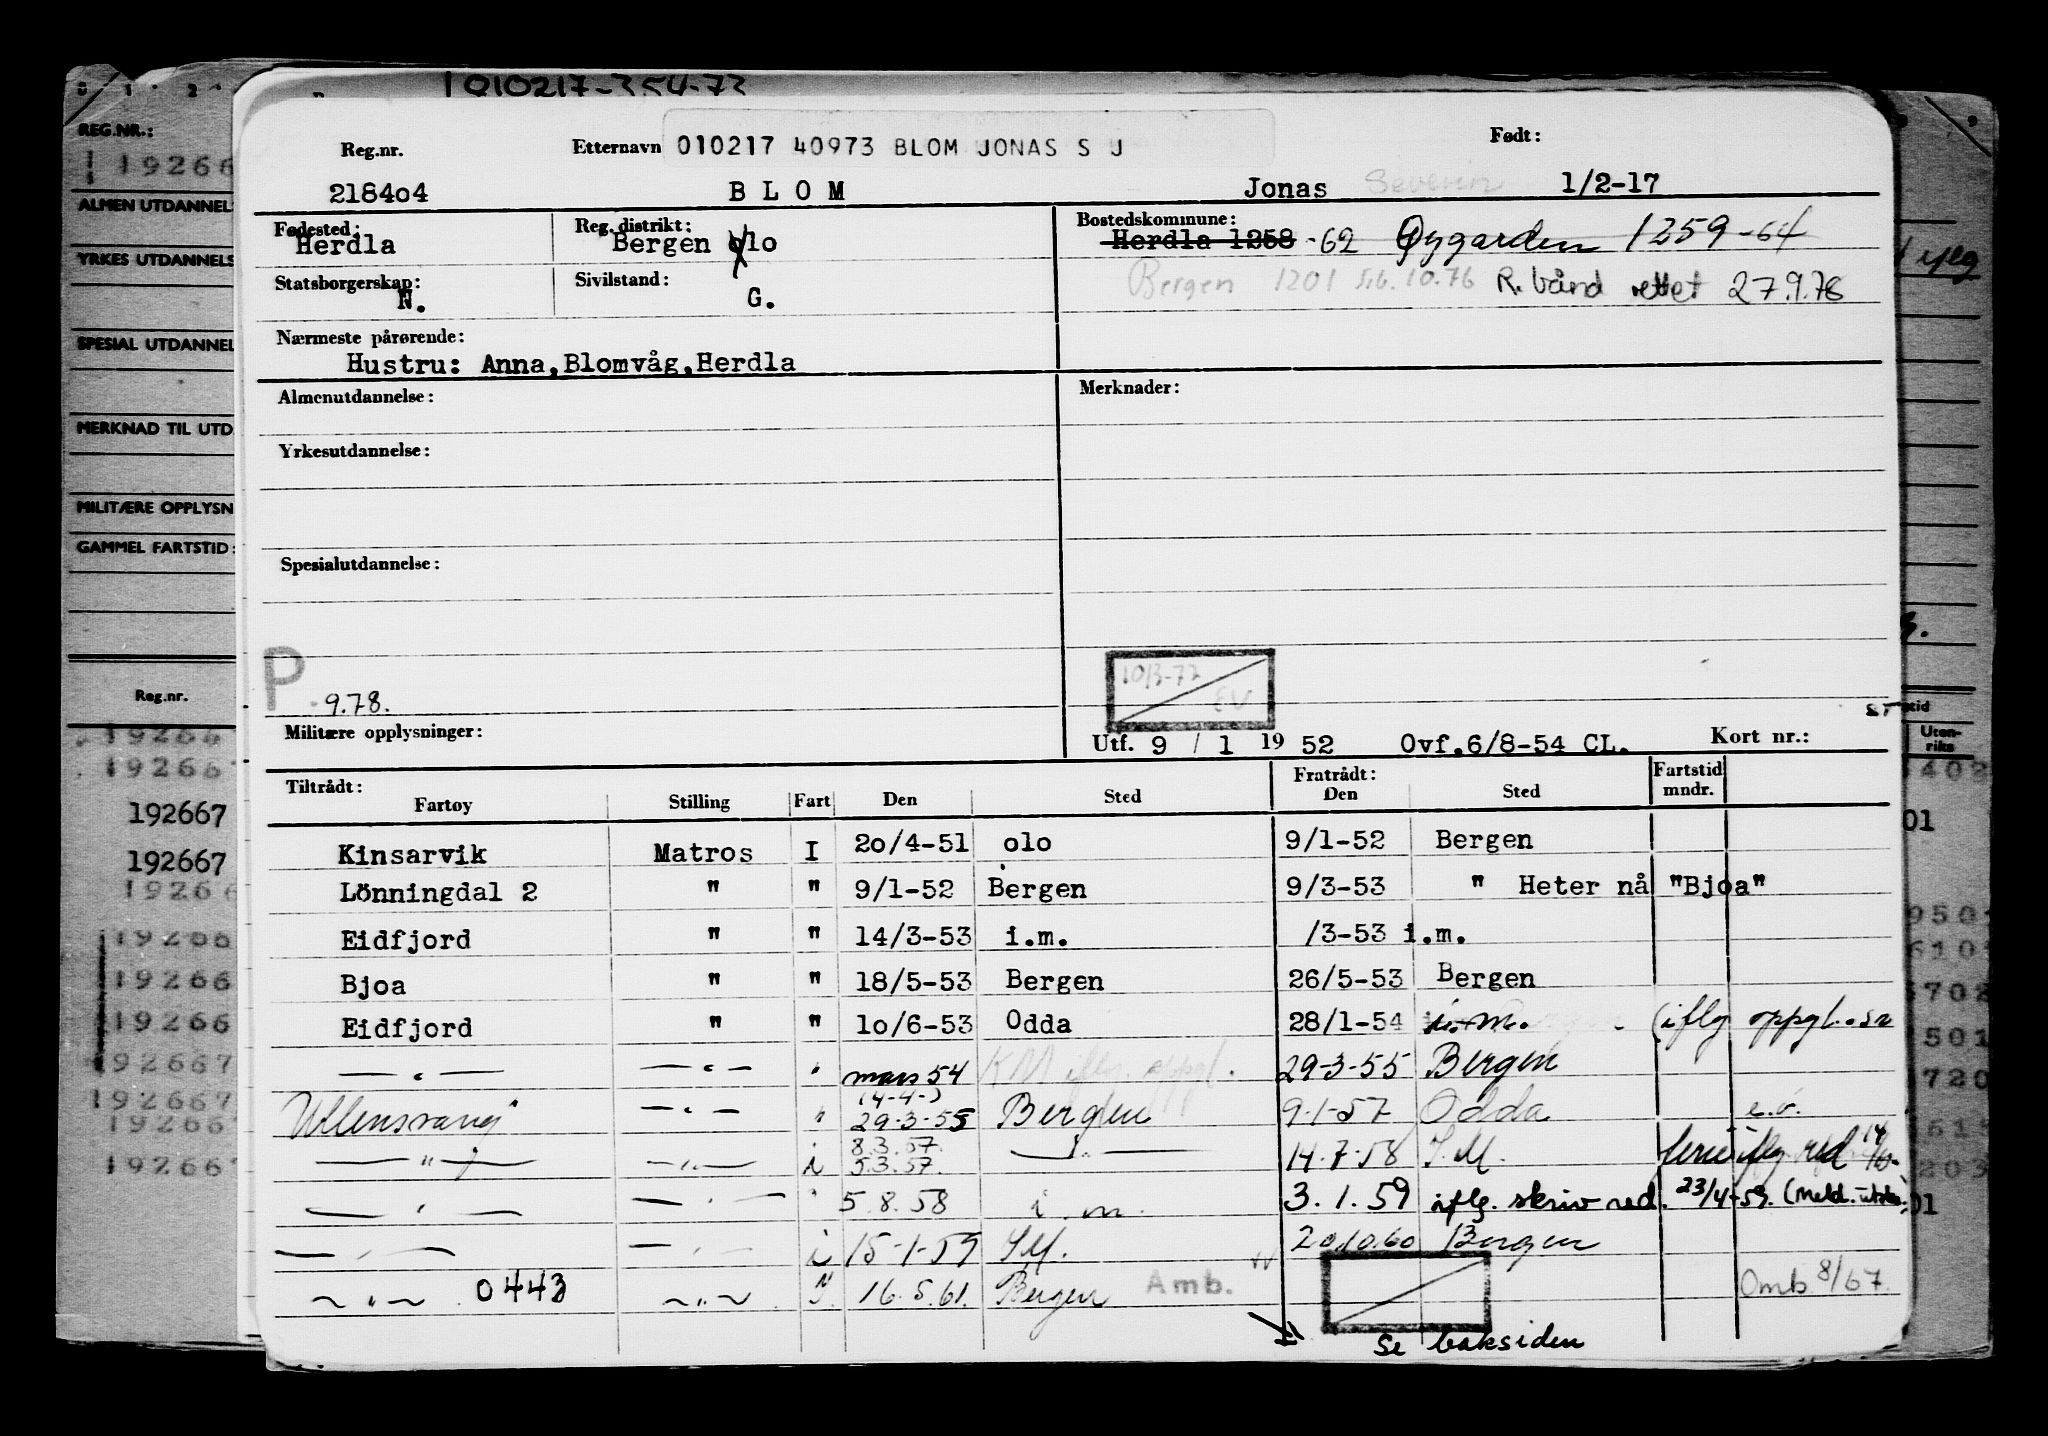 010217-354-73
Reg.nr. Etternavn 010217 40973 BLOM JONAS S J Født:
218404 BLOM Jonas Severin 1/2-17
Fødested: Herdla Reg. distrikt: Bergen olo Bostedskommune: Herdla 1258 -62 Øygarden 1259-64
Statsborgerskap: N. Sivilstand: G. Bergen 1201 5/6.10.76 R. bånd rettet 27.9.78
Nærmeste pårørende:
Hustru: Anna, Blomvåg, Herdla
Almenutdannelse: Merknader:
Yrkesutdannelse:
Spesialutdannelse:
P 10/3-77
9.78. EV
Militære opplysninger: Utf. 9 / 1 1952 Ovf. 6/8-54 CL. Kort nr.:
Tiltrådt: Fratrådt: Fartstid mndr.
Fartøy Stilling Fart Den Sted Den Sted
Kinsarvik Matros I 2o/4-51 olo 9/1-52 Bergen
Lönningdal 2 " " 9/1-52 Bergen 9/3-53 " Heter nå "Bjoa"
Eidfjord " " 14/3-53 i.m. /3-53 i.m.
Bjoa " " 18/5-53 Bergen 26/5-53 Bergen
Eidfjord " " 1o/6-53 Odda 28/1-54 i.m. (iflg oppgl.
— " — — " — " mars 54 KM iflg. oppgl. 29-3-55 Bergen
Ullensvang — " — " 29-3-55 Bergen 9-1-57 Odda e.o.
— " — — " — i 8.3.57. 5.3.57. — " — 14-7-58 I.M. ferie iflg red
— " — — " — " 5.8.58 i.m. 3.1.59 iflg. skriv red. 23/4-59. (Meld.
— " — — " — i 15-1-59 I.M. 20.10.60 Bergen
— " — 0443 — " — " 16.5.61. Bergen Amb. Omb 8/67.
Se baksiden
REG.NR.:
19266
ALMEN UTDANNEL
YRKES UTDANNELS
SPESIAL UTDANNEL
MERKNAD TIL UTD
MILITÆRE OPPLYSN
GAMMEL FARTSTID:
Reg.nr.
19266
19266
192667
192667
19266
19266
19266
19266
192667
192667
19266
192667
iflg
Uten-
riks
402
01
950
610
702
501
720
615
203
01